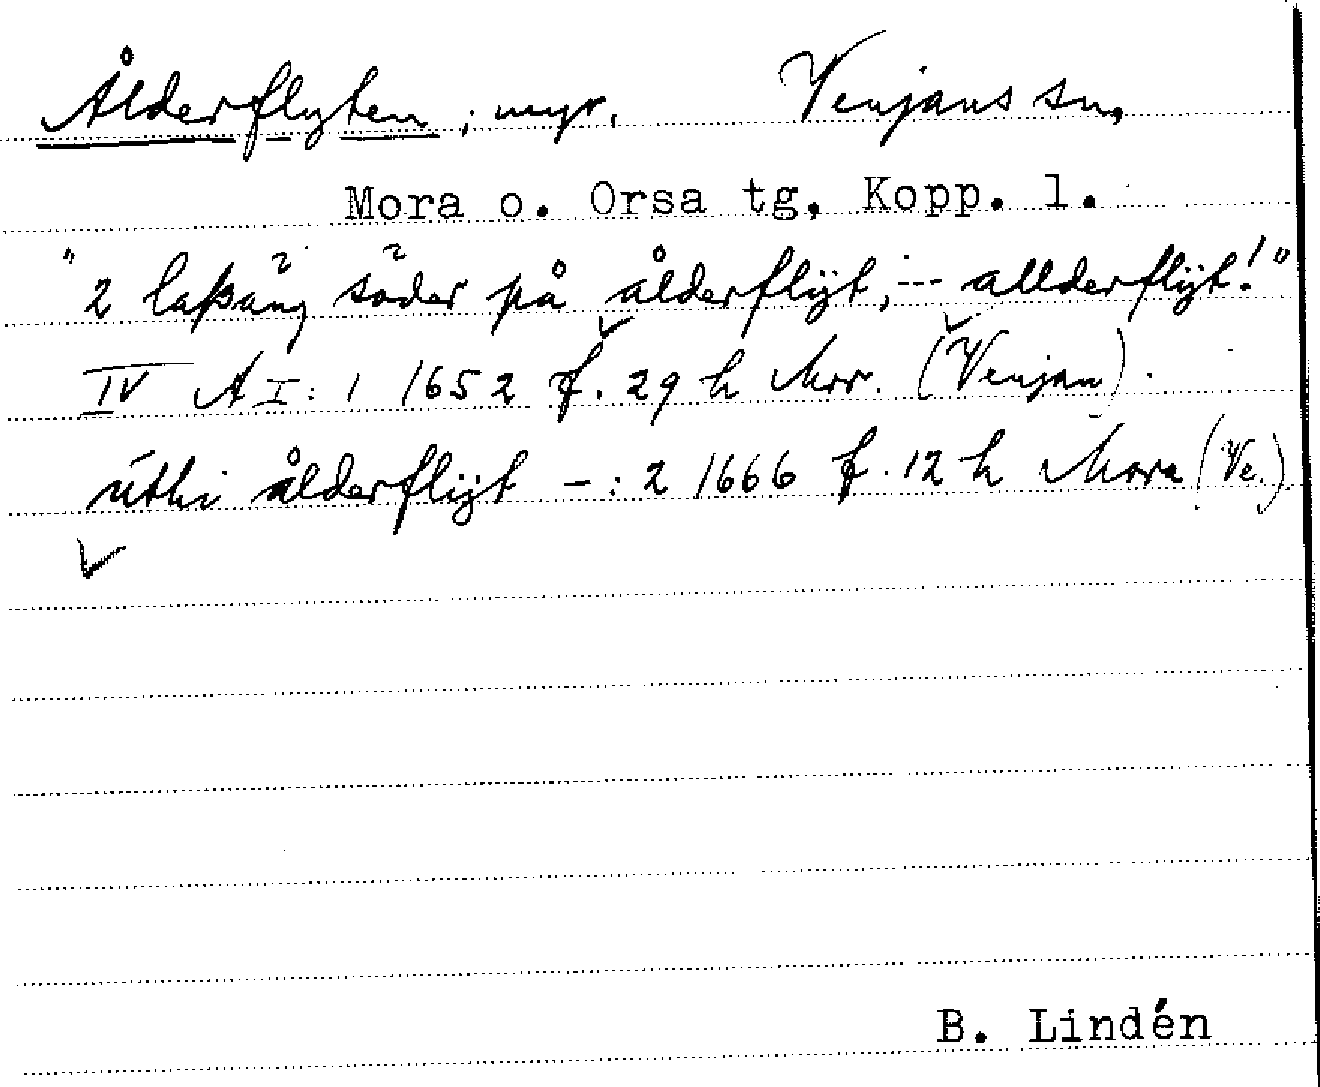 Ålderflyten, myr. Venjans sn,
Mora o. Orsa tg, Kopp. l.
"2 laßäng söder på ålderflÿt, --- allderflÿt!"
IV A I: 1 1652 f. 29 h Mor. (Venjan).
úthi ålderflÿt - : 2 1666 f. 12 h Mora (Ve.)
B. Lindén